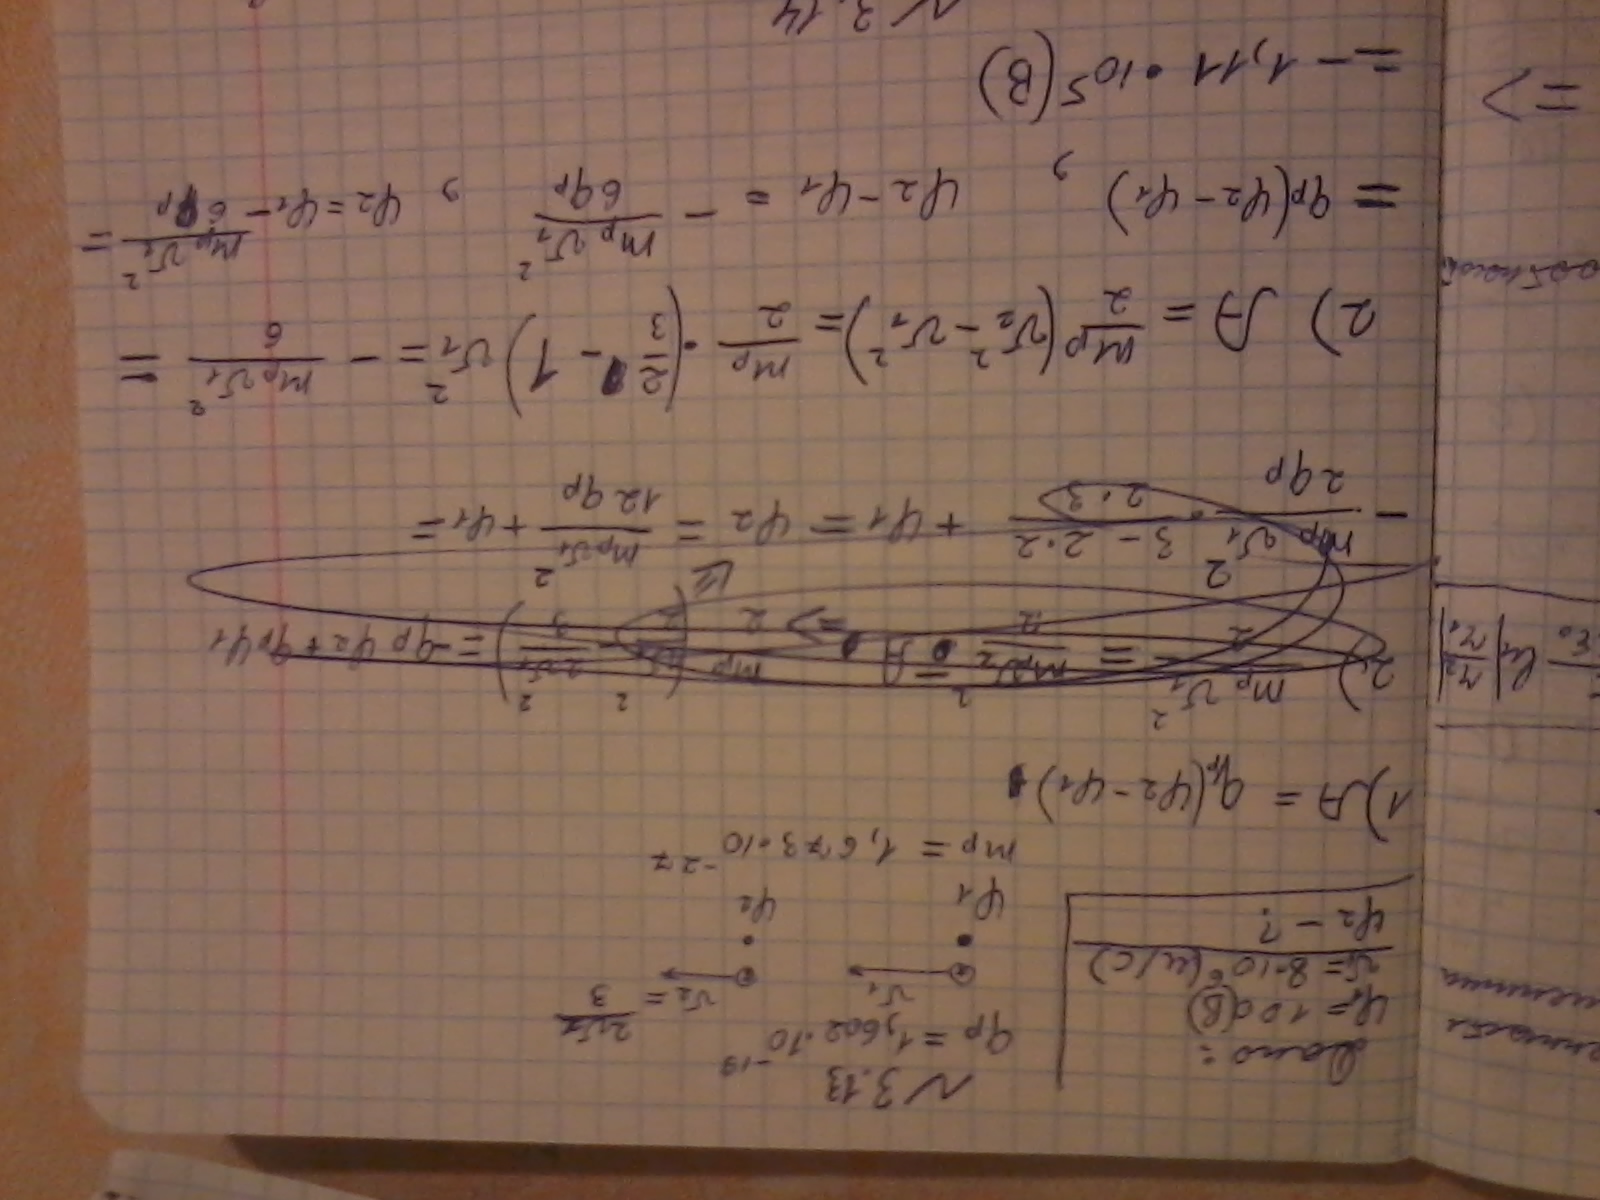 N 3.13
Дано:
φ₁ = 100(В)
v₁ = 8·10⁶(м/с)
φ₂ - ?
qp = 1,602·10⁻¹⁹
v₁
v₂ = 2v₁/3
φ₁ φ₂
mp = 1,673·10⁻²⁷
1) A = qp(φ₂-φ₁)
2) mpv₁²/2 = mpv₂²/2 - A => mp/2 ( - 2v₁²/3) = -qpφ₂ + qpφ₁
- mpv₁²/2qp · 3 - 2·2/2·3 + φ₁ = φ₂ = mpv₁²/12qp + φ₁ =
2) A = mp/2 (v₂² - v₁²) = mp/2 · (2/3 - 1) v₁² = - mpv₁²/6 =
= qp(φ₂-φ₁), φ₂-φ₁ = - mpv₁²/6qp, φ₂ = φ₁ - mpv₁²/6qp =
= - 1,11·10⁵(В)
N 3.14
ln|r₂/r₁|
=>